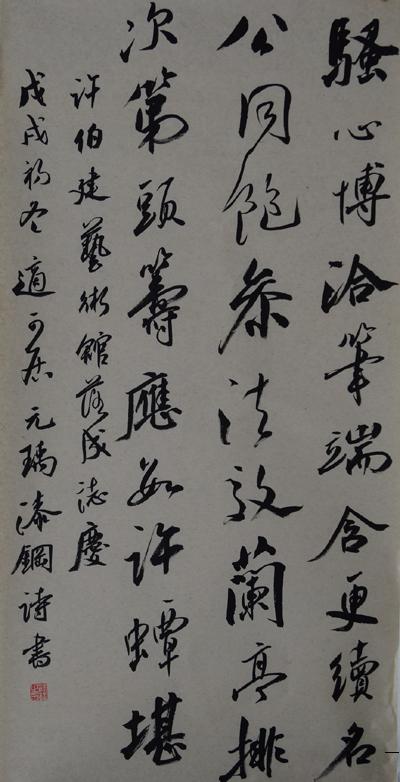 騷心博洽筆端含更續名
公同飽參法效蘭亭排
次第頭籌應與許蟫堪
許伯建藝術館落成誌慶
戊戌初冬適可居元瑀漆鋼詩書